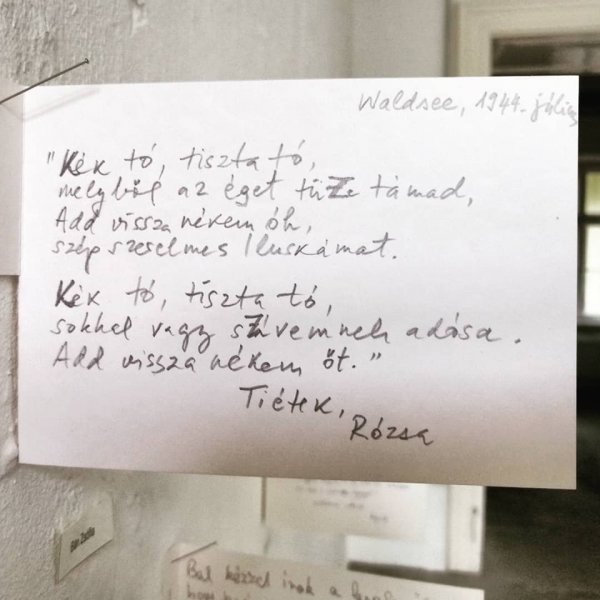 Waldsee, 1944. július
"Kék tó, tiszta tó,
melyből az éget tüze támad,
Add vissza nékem óh,
szép szerelmes Iluskámat.
Kék tó, tiszta tó,
sokkal vagy szívemnek adósa.
Add vissza nékem őt."
Tiétek,
Rózsa
Bán Zsófia
Bal kézzel írok a